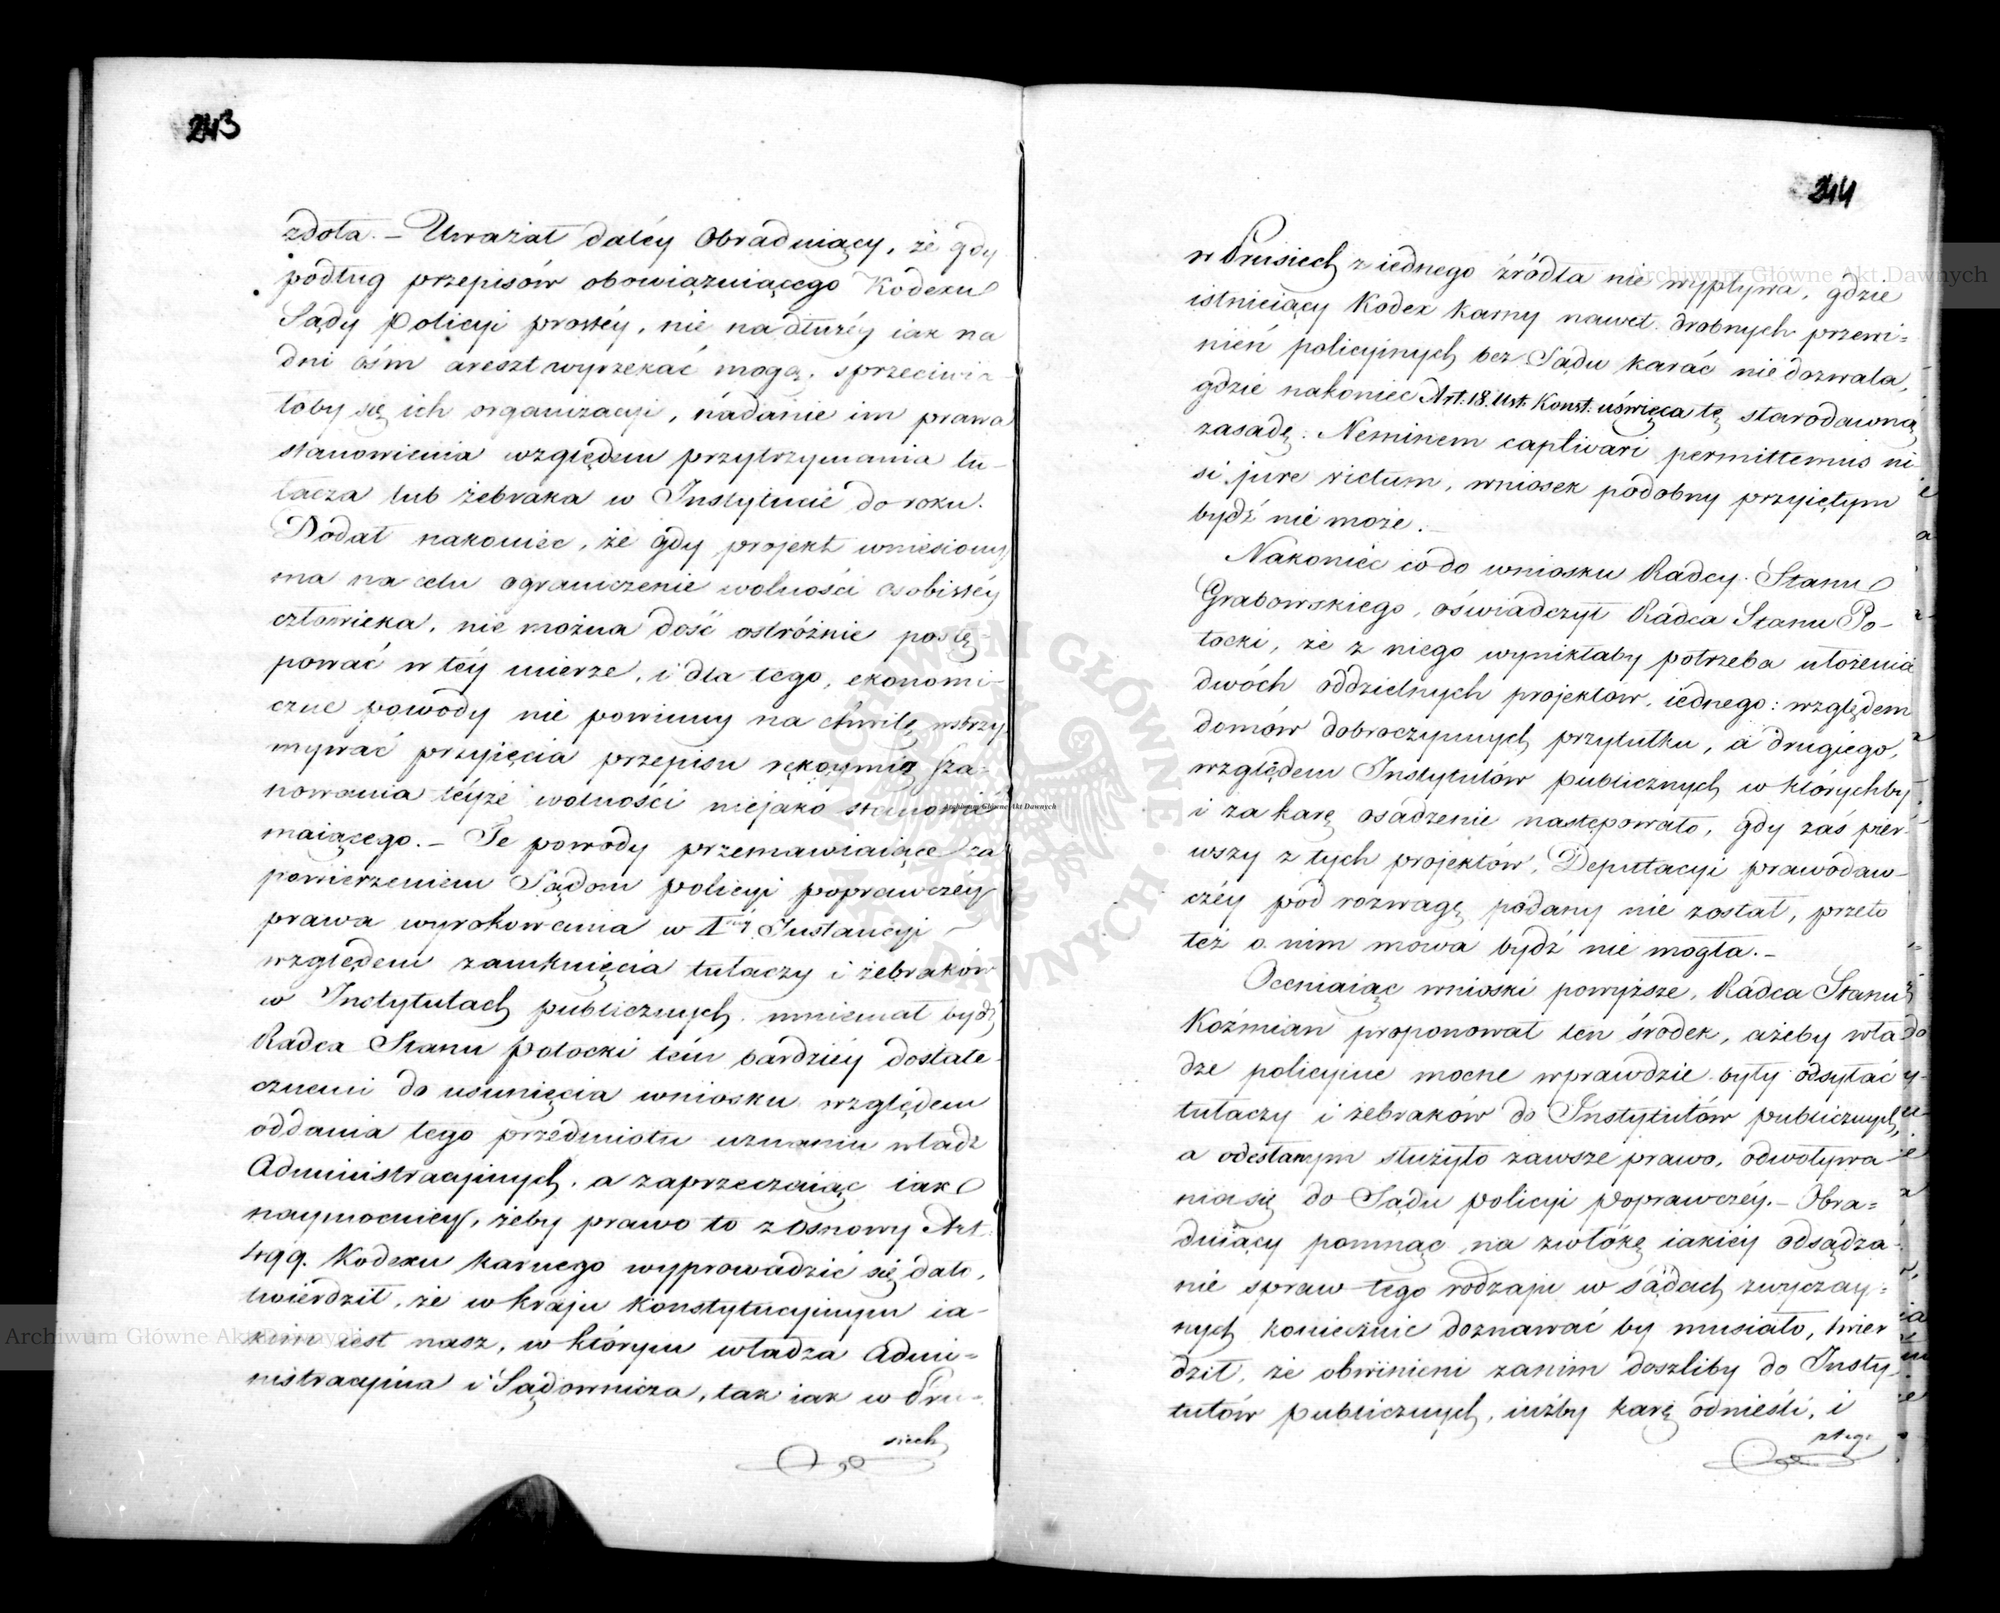 243
zdoła. – Uważał daléy Obraduiący, że gdy
podług przepisów obowiązuiącego Kodexu
Sądy Policyi prostéy, nie na dłużéy iak na
dni ośm areszt wyrzekać mogą, sprzeciwia-
łoby się ich organizacyi, nadanie im prawa
stanowienia względem przytrzymania tu-
łacza lub żebraka w Instytucie do roku.
Dodał nakoniec, że gdy projekt wniesiony
ma na celu ograniczenie wolności osobistéy
człowieka, nie można dość ostróżnie postę-
pować w téy mierze, i dla tego, ekonomi-
czne powody nie powinny na chwilę wstrzy-
mywać przyięcia przepisu rękoymią sza-
nowania téyże wolności niejako stanowić
maiącego. – Te powody przemawiaiące za
powierzeniem Sądom policyi poprawczéy
prawa wyrokowania w 1néy Instancyi –
względem zamknięcia tułaczy i żebraków
w Instytutach publicznych, mniemał bydź
Radca Stanu Potocki tém bardziéy dostate-
cznemi do usunięcia wniosku względem
oddania tego przedmiotu uznaniu władz
Administracyinych, a zaprzeczaiąc iak
naymocniey, żeby prawo to z osnowy Art.
499. Kodexu karnego wyprowadzić się dało,
twierdził, że w kraju konstytucyinym ia-
kim iest nasz, w którym władza Admi-
nistracyina i Sądownicza, tak iak w Pru-
siech
244
w Prusiech z iednego źródła nie wypływa, gdzie
istnieiący Kodex karny nawet drobnych przewi-
nień policyinych bez Sądu karać nie dozwala,
gdzie nakoniec Art: 18. Ust. Konst: uświęca tę starodawną
zasadę: Neminem captivari permittemus ni-
si jure victum, wniosek podobny przyiętym
bydź nie może. –
Nakoniec co do wniosku Radcy Stanu
Grabowskiego, oświadczył Radca Stanu Po-
tocki, że z niego wynikłaby potrzeba ułożenia
dwóch oddzielnych projektow, iednego: względem
domów dobroczynnych przytułku, a drugiego,
względem Instytutów publicznych w którychby
i za karę osadzenie następowało, gdy zaś pier-
wszy z tych projektów, Deputacyi prawodaw-
czéy pod rozwagę podany nie został, przeto
też o nim mowa bydź nie mogła. –
Oceniaiąc wnioski powyższe, Radca Stanu
Koźmian proponował ten środek, ażeby wła-
dze policyine mocne wprawdzie były odsyłać
tułaczy i żebraków do Instytutów publicznych,
a odesłanym służyło zawsze prawo, odwoływa-
nia się do Sądu policyi poprawczéy. – Obra-
duiący pomnąc na zwłókę iakiéy odsądza-
nie spraw tego rodzaju w sądach zwyczay-
nych koniecznie doznawać by musiało, twier-
dził, że obwinieni zanim doszliby do Insty-
tutów publicznych, iużby karę odnieśli, i
z tego
Archiwum Główne Akt Dawnych
Archiwum Główne Akt Dawnych
Archiwum Główne Akt Dawnych
ARCHIWUM GŁÓWNE AKT DAWNYCH